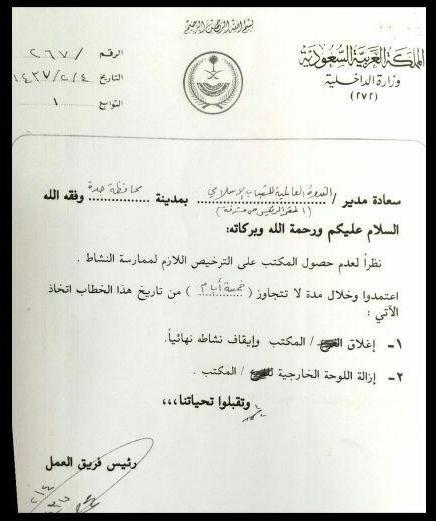 بسم الله الرحمن الرحيم
المملكة العربية السعودية
وزارة الداخلية
(٢٧٢)
الرقم / ٢٦٧
التاريخ ١٤٣٧/٢/٤
التوابع ١
سعادة مدير / الندوة العالمية للشباب الإسلامي بمدينة محافظة جدة وفقه الله
(المقر الرئيسي حي مشرفة)
السلام عليكم ورحمة الله وبركاته:
نظراً لعدم حصول المكتب على الترخيص اللازم لممارسة النشاط .
اعتمدوا وخلال مدة لا تتجاوز ( خمسة أيام ) من تاريخ هذا الخطاب اتخاذ
الآتي :
١- إغلاق / المكتب وإيقاف نشاطه نهائياً.
٢- إزالة اللوحة الخارجية / المكتب .
وتقبلوا تحياتنا،،،
رئيس فريق العمل